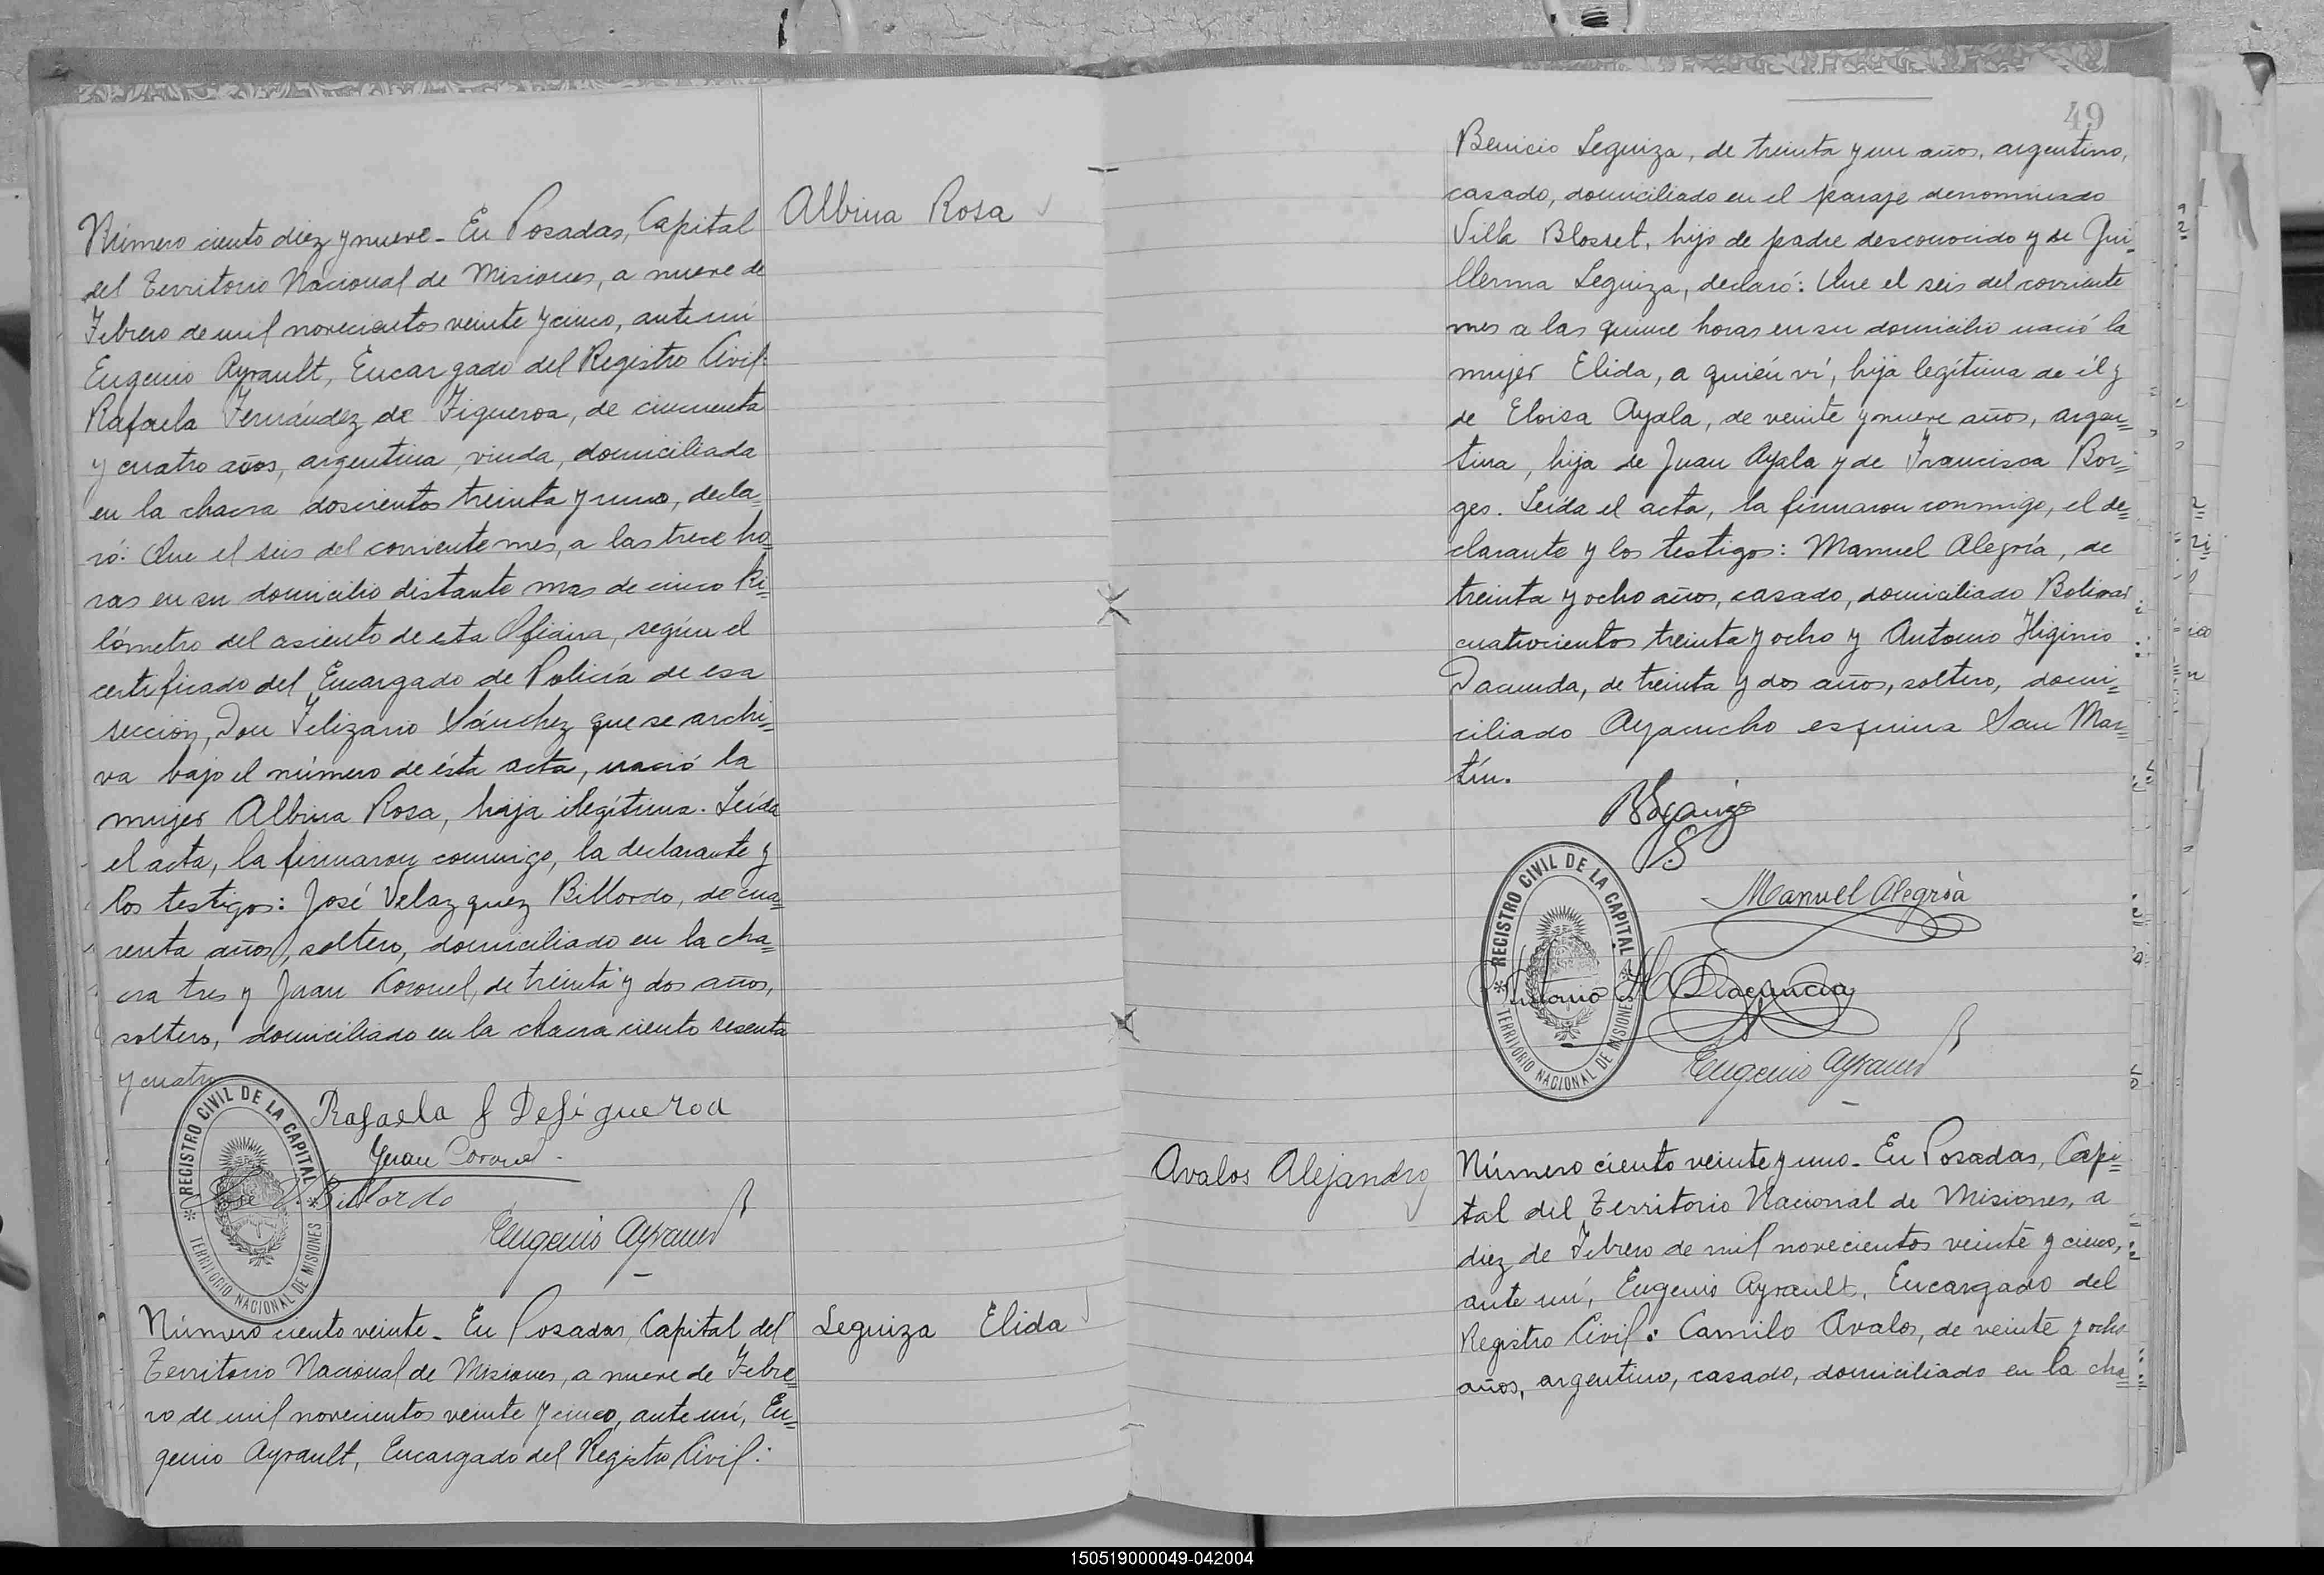 Albina Rosa
Número ciento diez y nueve - En Posadas, Capital
del Territorio Nacional de Misiones, a nueve de
Febrero de mil novecientos veinte y cinco, ante mí
Eugenio Ayrault, Encargado del Registro Civil:
Rafaela Fernández de Figueroa, de cincuenta
y cuatro años, argentina, viuda, domiciliada
en la chacra doscientos treinta y uno, decla=
ró: Que el seis del corriente mes, a las trece ho=
ras en su domicilio distante mas de cinco Ki=
lómetro del asiento de esta Oficina, según el
certificado del Encargado de Policía de esa
sección, Don Felizario Sánchez que se archi=
va bajo el número de ésta acta, nació la
mujer Albina Rosa, hija ilegítima. Leída
el acta, la firmaron conmigo, la declarante y
los testigos: José Velazquez Billordo, de cua=
renta años, soltero, domiciliado en la cha=
cra tres y Juan Coronel, de treinta y dos años,
soltero, domiciliado en la chacra ciento sesenta
y cuatro
Rafaela f Defigueroa
Juan Coronel.
José V. Billordo
Eugenio Ayrault
REGISTRO CIVIL DE LA CAPITAL
TERRITORIO NACIONAL DE MISIONES
Leguiza Elida
Número ciento veinte - En Posadas, Capital del
Territorio Nacional de Misiones, a nueve de Febre=
ro de mil novecientos veinte y cinco, ante mí, Eu=
genio Ayrault, Encargado del Registro Civil:
49
Benicio Leguiza, de treinta y un años, argentino,
casado, domiciliado en el paraje denominado
Villa Blosset, hijo de padre desconocido y de Gui=
llerma Leguiza, declaró: Que el seis del corriente
mes a las quince horas en su domicilio nació la
mujer Elida, a quién ví, hija legítima de él y
de Eloisa Ayala, de veinte y nueve años, argen=
tina, hija de Juan Ayala y de Francisca Bor=
ges. Leída el acta, la firmaron conmigo, el de=
clarante y los testigos: Manuel Alegría, de
treinta y ocho años, casado, domiciliado Bolivar
cuatrocientos treinta y ocho y Antonio Higinio
Dacunda, de treinta y dos años, soltero, domi=
ciliado Ayacucho esquina San Mar=
tín.
Manuel Alegría
Antonio H Dacunda
Eugenio Ayrault
REGISTRO CIVIL DE LA CAPITAL
TERRITORIO NACIONAL DE MISIONES
Avalos Alejandro
Número ciento veinte y uno - En Posadas, Capi=
tal del Territorio Nacional de Misiones, a
diez de Febrero de mil novecientos veinte y cinco,
ante mí, Eugenio Ayrault, Encargado del
Registro Civil: Camilo Avalos, de veinte y ocho
años, argentino, casado, domiciliado en la cha=
150519000049-042004